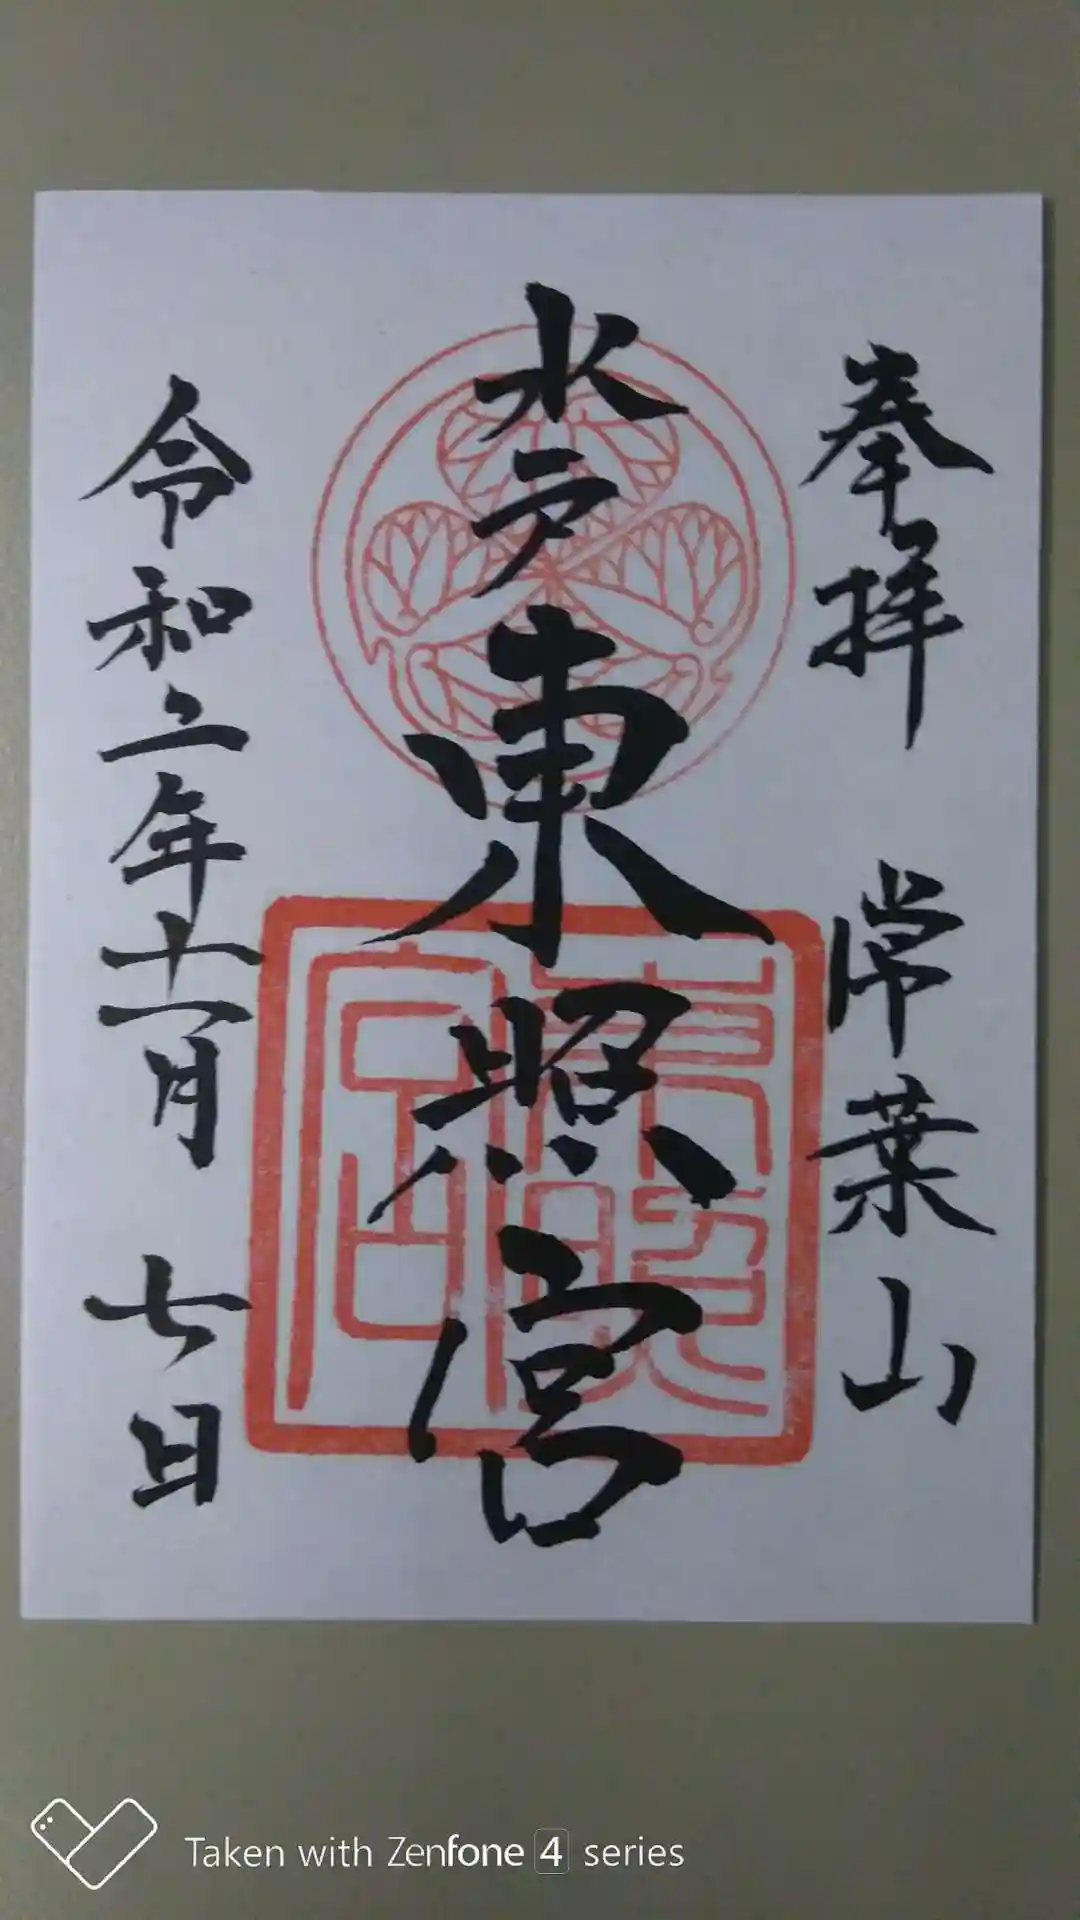 奉拝 常葉山
水戸東照宮
令和二年十一月 七日
東照宮
Taken with Zenfone 4 series